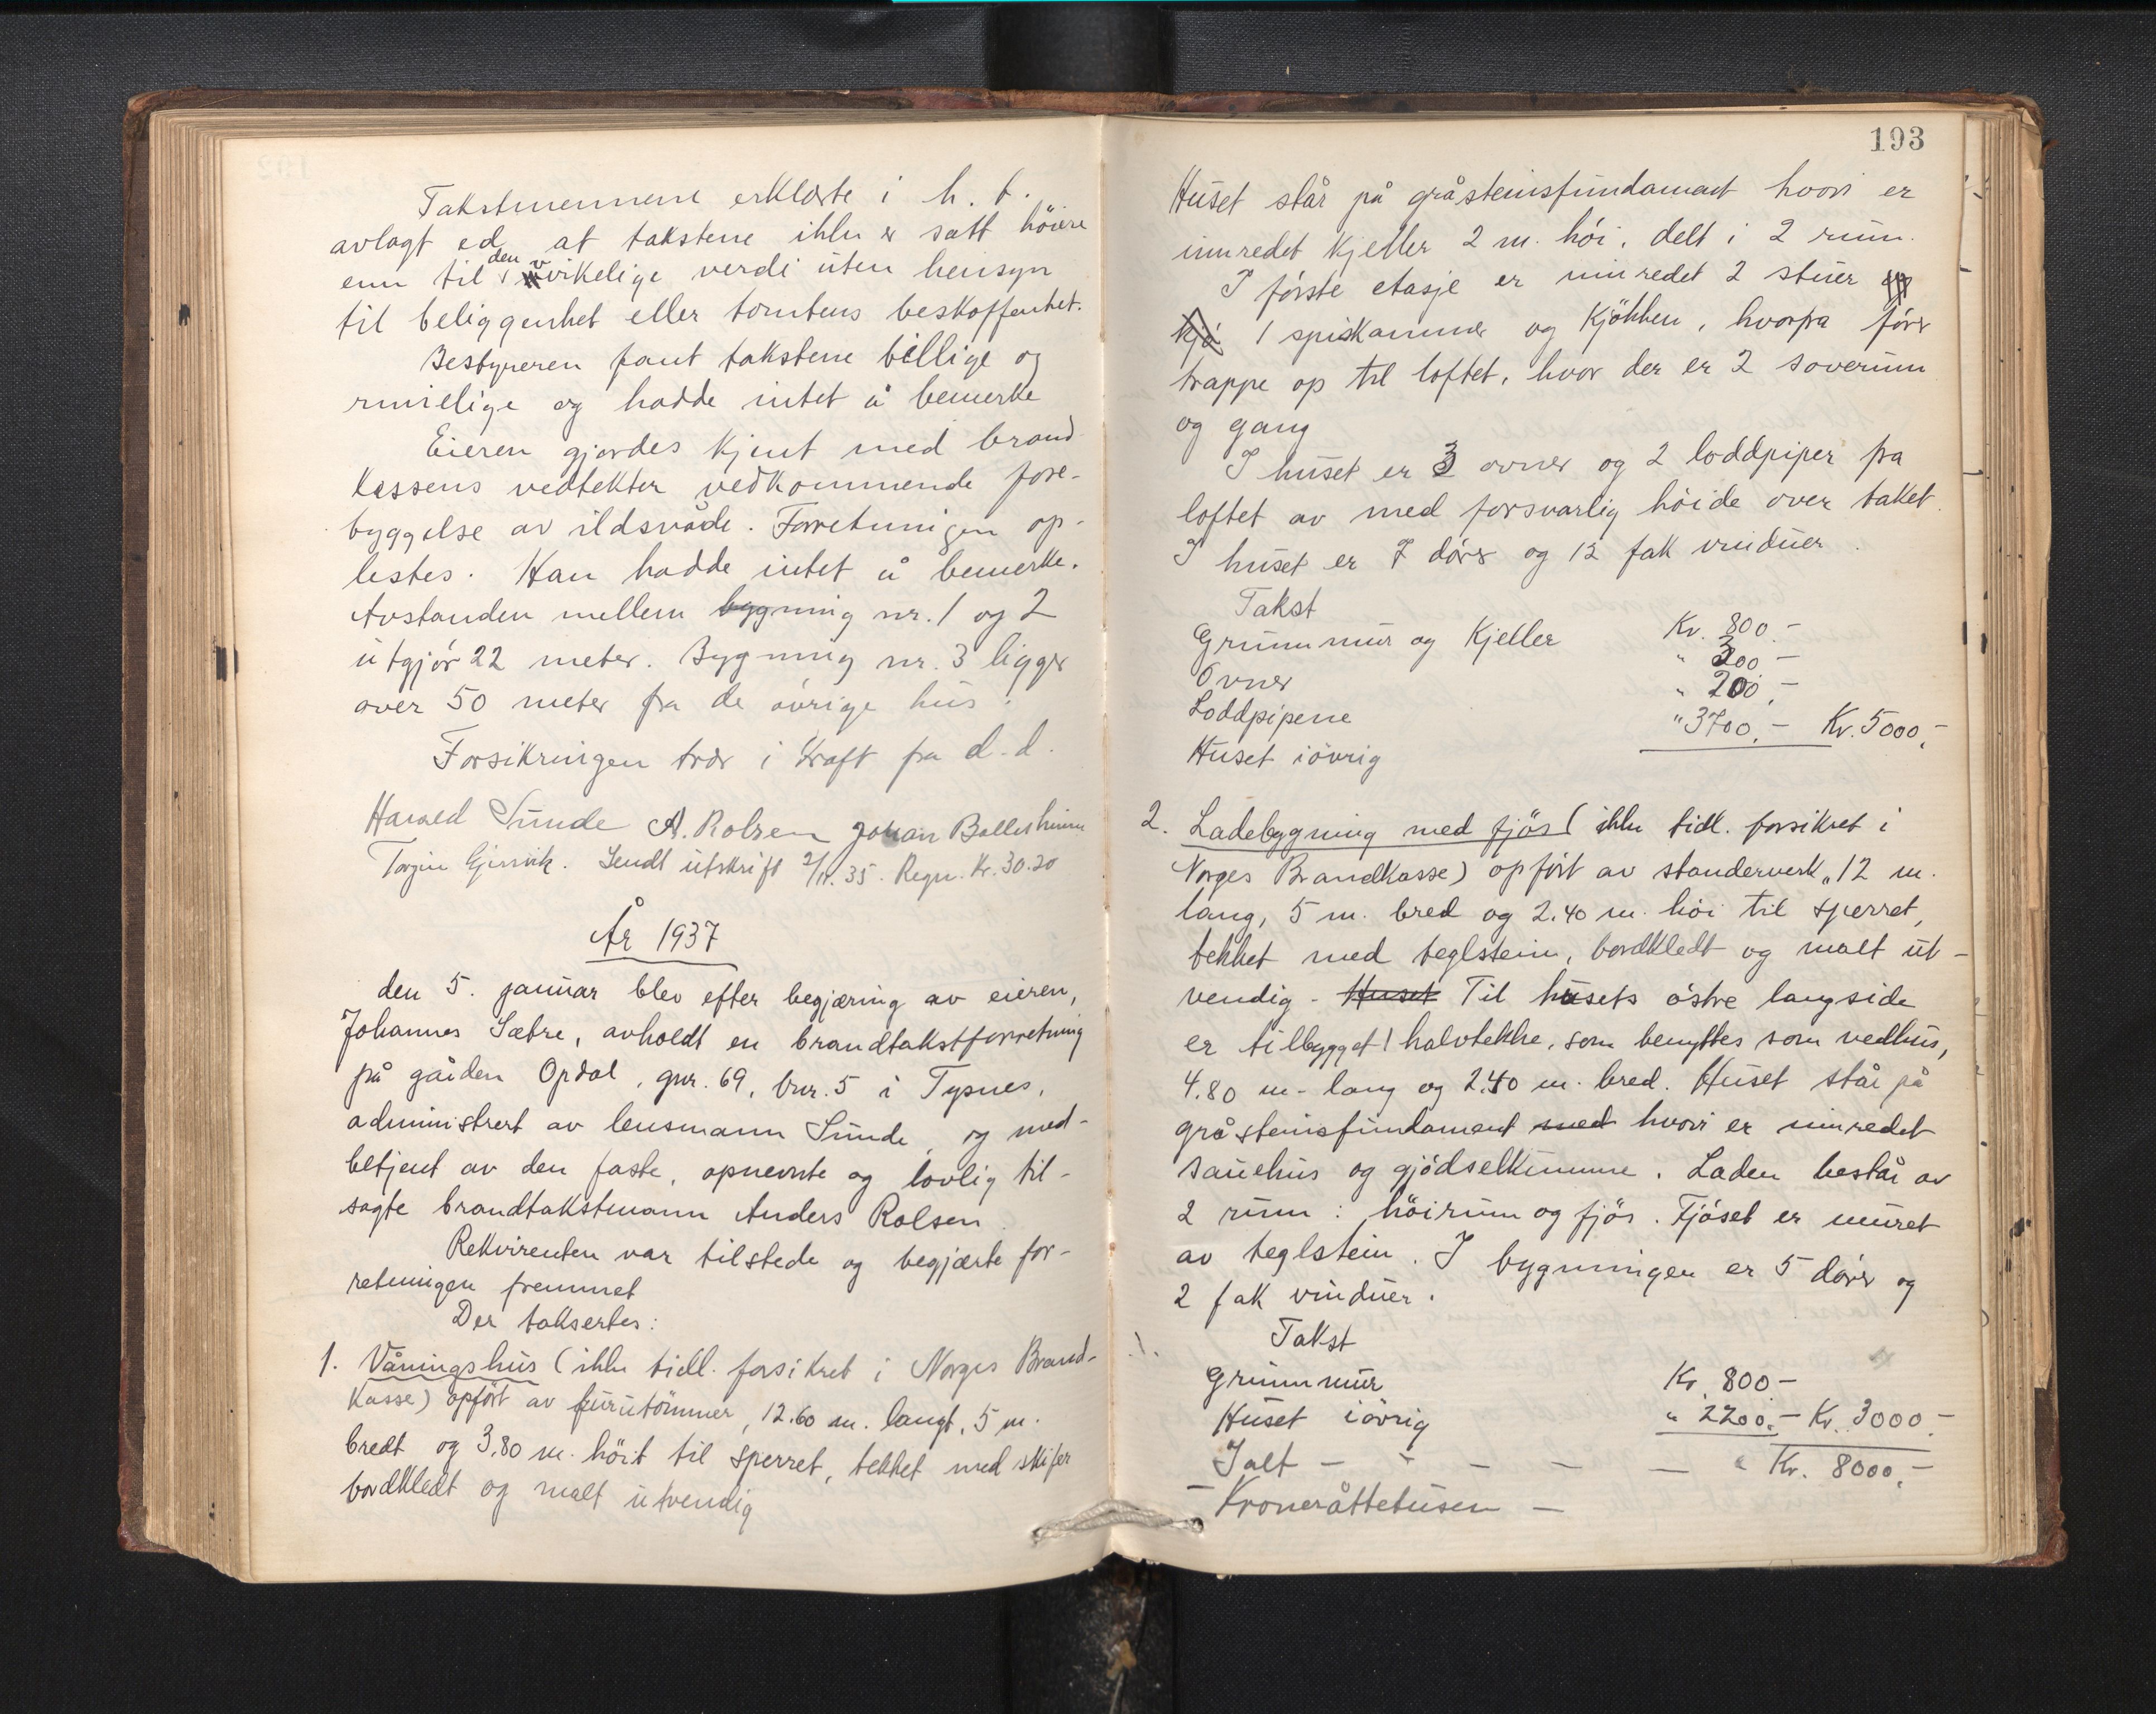 Takstmennene erklærte i h. t.
avlagt ed, at takstene ikke er satt höiere
enn til den virkelige verdi uten hensyn
til beliggenhet eller tomtens beskaffenhet.
Bestyreren fant takstene billige og
rimelige og hadde intet å bemerke
Eieren gjordes kjent med brand-
kassens vedtekter vedkommende fore-
byggelse av ildsvåde. Forretningen op-
lestes. Han hadde intet å bemerke.
Avstanden mellem bygning nr. 1 og 2
utgjör 22 meter. Bygning nr. 3 ligger
over 50 meter fra de övrige hus.
Forsikringen trær i kraft fra d.d.
Harald Sunde A. Rolsen Johan Ballesheim
Torgin Gjersvik. Sendt utskrift 2/11. 35. Regn. Kr. 30.20
År 1937
den 5. januar blev efter begjæring av eieren,
Johannes Sætre, avholdt en brandtakstforretning
på gården Opdal, gnr. 69, bnr. 5 i Tysnes,
administrert av lensmann Sunde, og med-
betjent av den faste, opnevnte og lovlig til-
sagte brandtakstmann Anders Rolsen
Rekvirenten var tilstede og begjærte for-
retningen fremmet
Der taksertes:
1. Våningshus (ikke tidl. forsikret i Norges Brand-
kasse) opfört av furutömmer, 12.60 m. langt, 5 m.
bredt og 3.80 m. höit til sperret, tekket med skifer
bordkledt og malt utvendig
193
Huset står på gråsteinsfundament hvori er
innredet kjeller 2 m. höi, delt i 2 rum.
I förste etasje er innredet 2 stuer
kjö 1 spiskammer og kjökken, hvorfra förer
trappe op til loftet, hvor der er 2 soverum
og gang
I huset er 3 ovner og 2 loddpiper fra
loftet av med forsvarlig höide over taket.
I huset er 7 dörer og 12 fak vinduer.
Takst
Grunnmur og kjeller Kr. 800.-
Ovner " 300 -
Loddpipene " 200.-
Huset iövrig " 3700.- Kr. 5000.-
2. Ladebygning med fjös (ikke tidl. forsikret i
Norges Brandkasse) opfört av standerverk, 12 m.
lang, 5 m. bred og 2.40 m. höi til sperret,
tekket med teglstein, bordkledt og malt ut-
vendig - Huset Til husets östre langside
er tilbygget 1 halvtekke, som benyttes som vedhus,
4.80 m. lang og 2.40 m. bred. Huset står på
gråsteinsfundament med hvori er innredet
sauehus og gjödselkumme. Laden består av
2 rum: höirum og fjös. Fjöset er muret
av teglstein. I bygningen er 5 dörer og
2 fak vinduer.
Takst
Grunnmur Kr. 800 -
Huset iövrig " 2200.- Kr. 3000.-
Ialt - - - - - " Kr. 8000.-
- Kroneråttetusen -